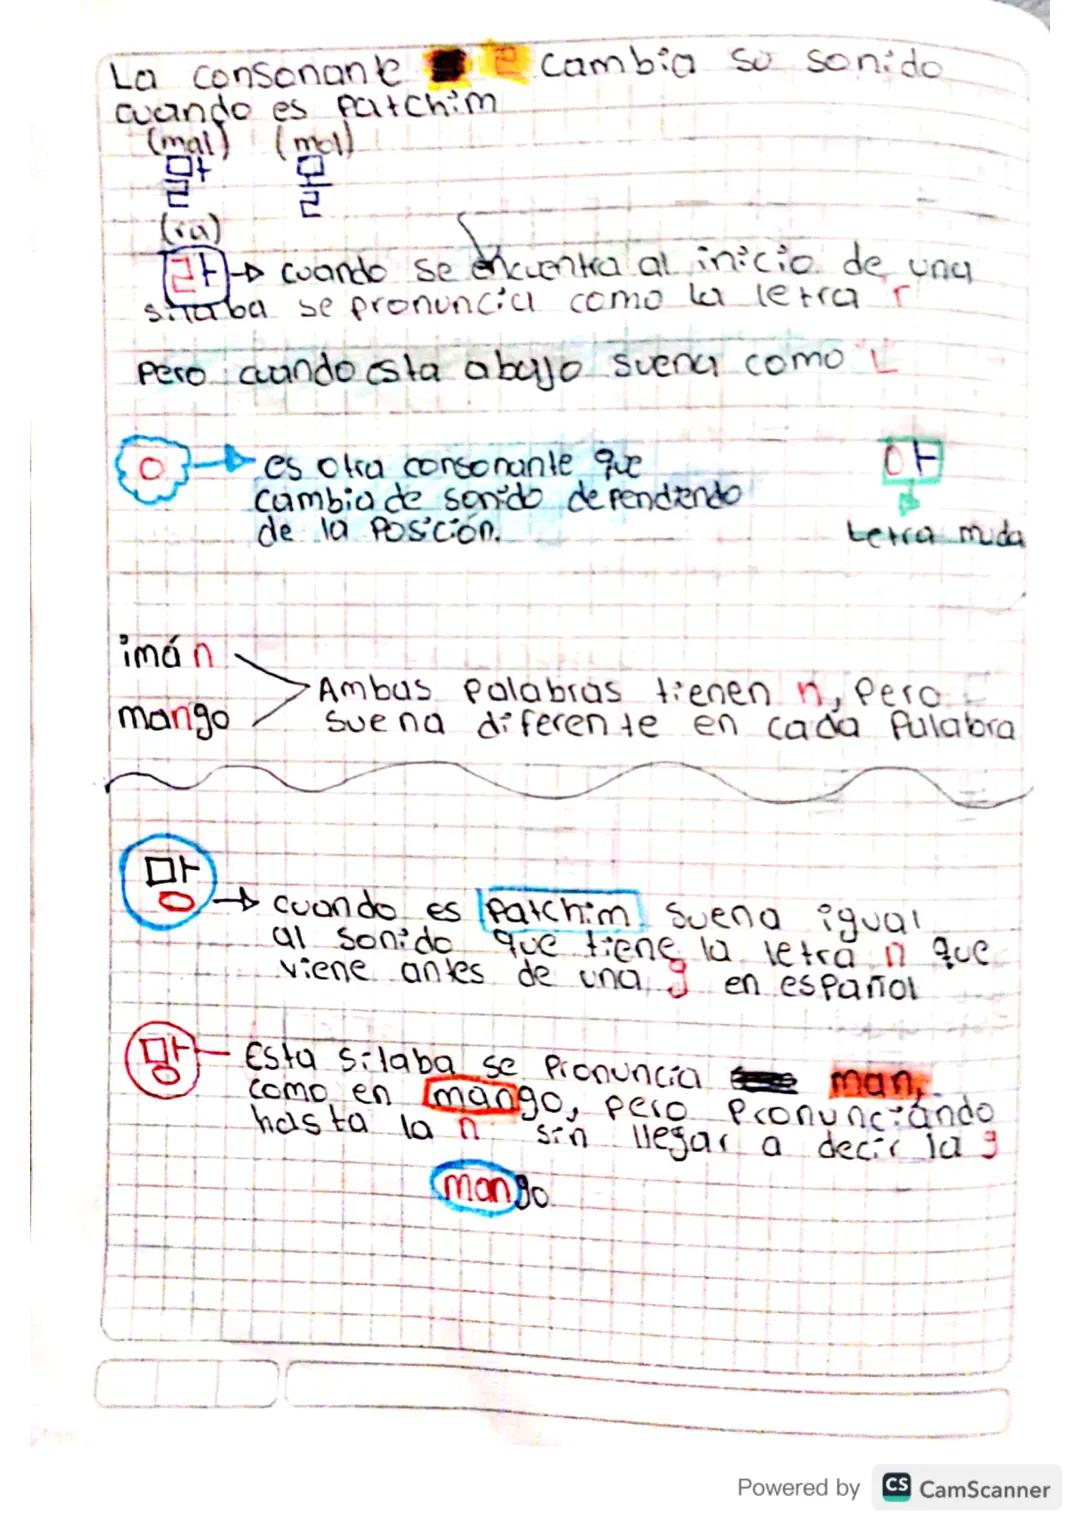 La consonante ㄹ cambia su sonido
cuando es patchim
(mal) (mol)
말 몰
(ra)
라 → cuando se encuentra al inicio de una
silaba se pronuncia como la letra r
pero cuando esta abajo suena como L
ㅇ → es otra consonante que
cambia de sonido dependiendo
de la posición.
아
Letra muda
imán
mango
Ambas palabras tienen n, pero
suena diferente en cada palabra
망
→ cuando es patchim suena igual
al sonido que tiene la letra n que
viene antes de una g en español
망 Esta silaba se pronuncia man,
como en mango, pero pronunciando
hasta la n sin llegar a decir la g
mango
Powered by CS CamScanner